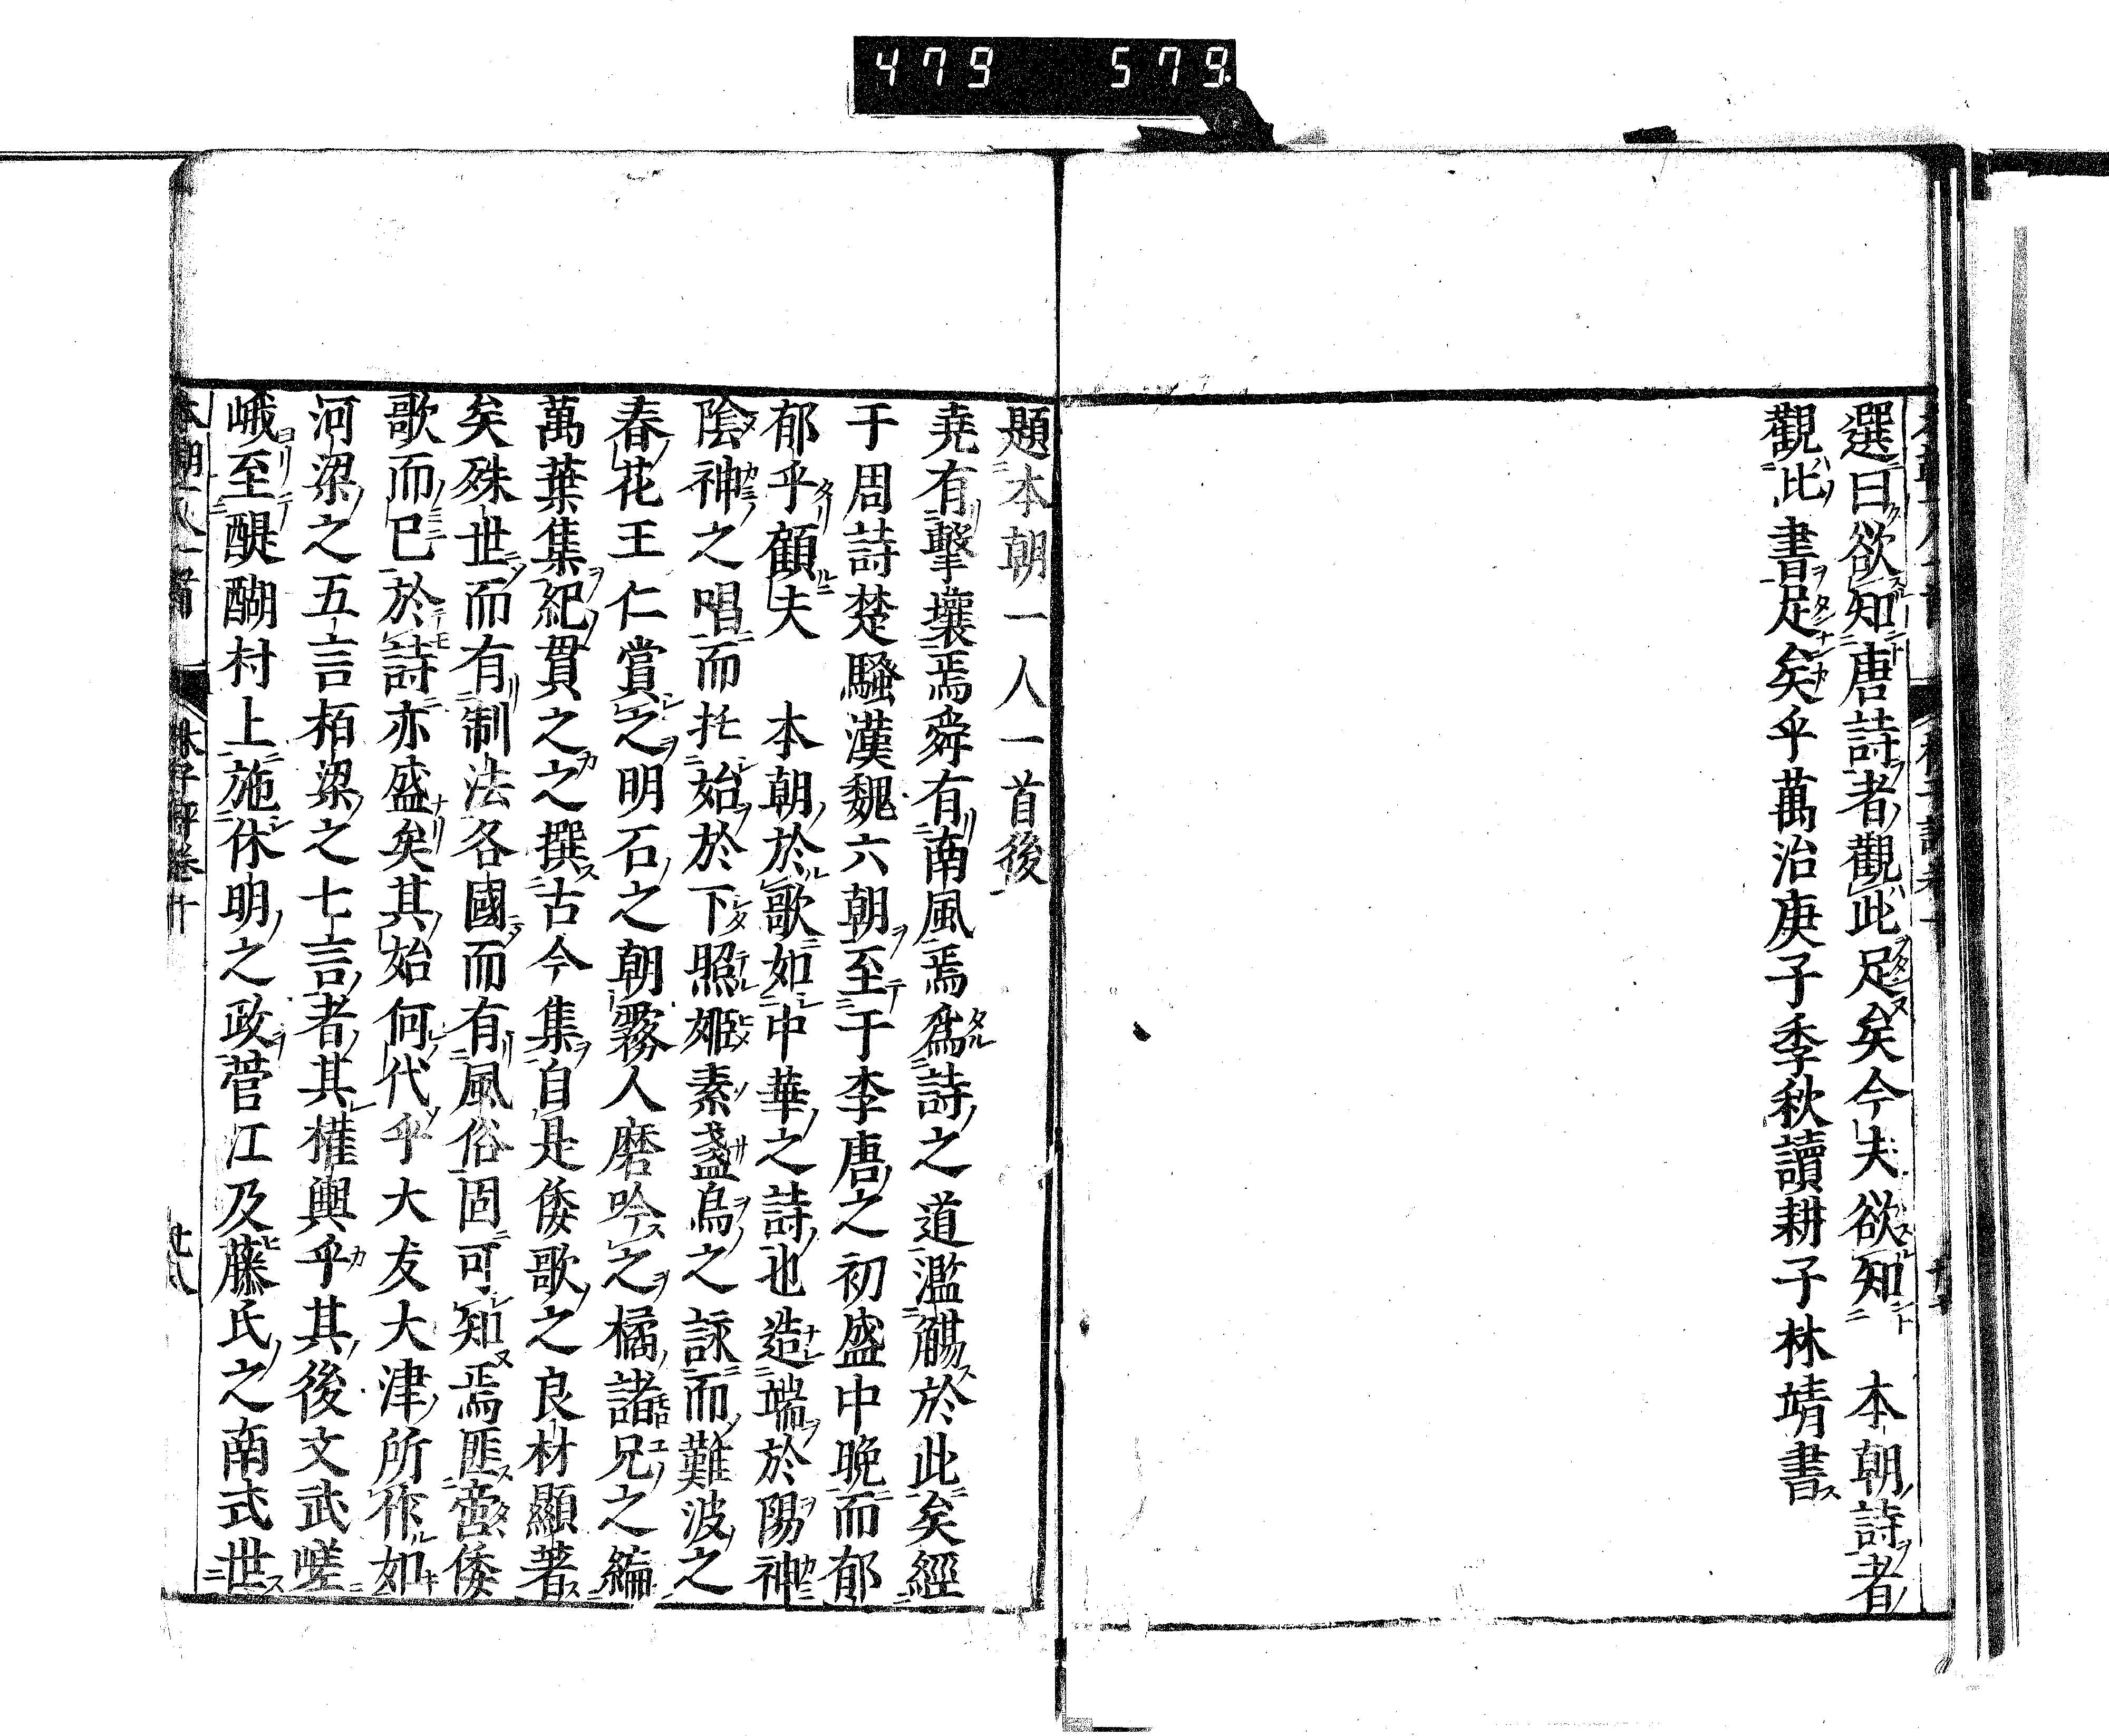 479 579
選曰欲知唐詩者觀此足矣今夫欲知 本朝詩者
觀此書足矣乎萬治庚子季秋讀耕子林靖書
題本朝一人一首後
堯有擊壤焉舜有南風焉爲詩之道濫觴於此矣經
于周詩楚騷漢魏六朝至于李唐之初盛中晚而郁
郁乎顧夫 本朝於歌如中華之詩也造端於陽神
陰神之唱而托始於下照姬素盞烏之詠而難波之
春花王仁賞之明石之朝霧人磨吟之橘諸兄之編
萬葉集紀貫之之撰古今集自是倭歌之良材顯著
矣殊世而有制法各國而有風俗固可知焉匪啻倭
歌而已於詩亦盛矣其始何代乎大友大津所作如
河梁之五言栢梁之七言者其權輿乎其後文武嵯
峨至醍醐村上施休明之政菅江及藤氏之南式世
本朝一人一首 林子評卷十 廿八